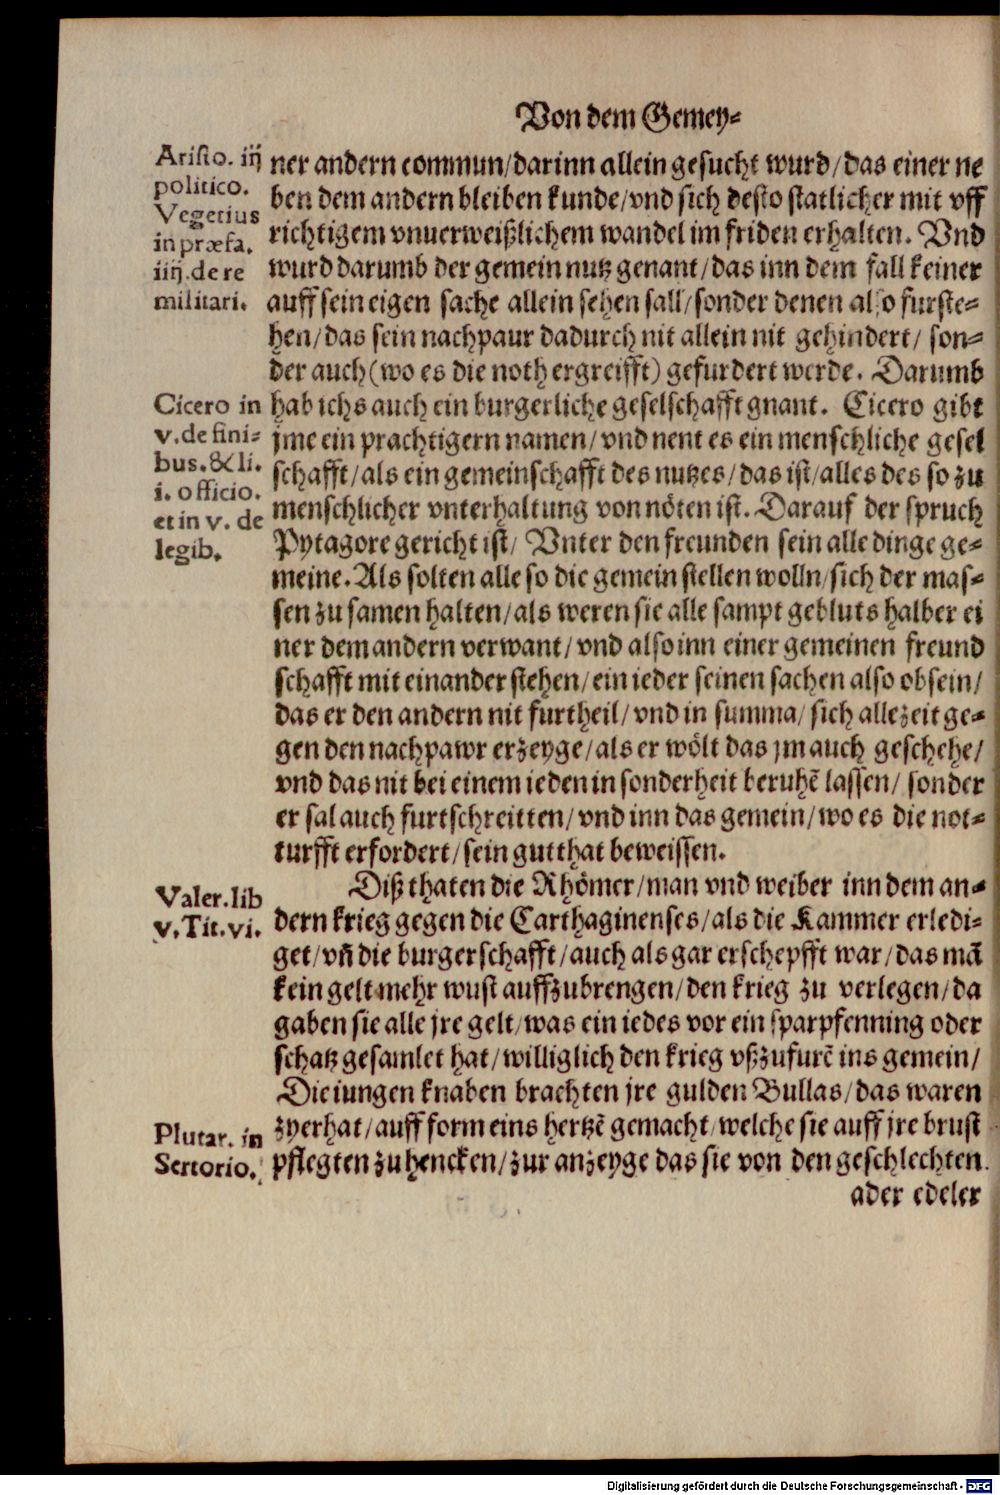 Von dem Gemey⸗
Aristo. iij
politico.
Vegetius
in præfa.
iiij. de re
militari.
ner andern commun/darinn allein gesucht wurd/das einer ne
ben dem andern bleiben kunde/vnd sich desto statlicher mit vff
richtigem vnuerweißlichem wandel im friden erhalten. Vnd
wurd darumb der gemein nutz genant/das inn dem fall keiner
auff sein eigen sache allein sehen sall/sonder denen also furste⸗
hen/das sein nachpaur dadurch nit allein nit gehindert/ son⸗
der auch (wo es die noth ergreifft) gefurdert werde. Darumb
Cicero in
v. de fini⸗
bus. & li.
i. officio.
et in v. de
legib.
hab ichs auch ein burgerliche geselschafft gnant. Cicero gibt
jme ein prachtigern namen/vnd nent es ein menschliche gesel
schafft/als ein gemeinschafft des nutzes/das ist/alles des so zu
menschlicher vnterhaltung von nöten ist. Darauf der spruch
Pytagore gericht ist/ Vnter den freunden sein alle dinge ge⸗
meine. Als solten alle so die gemein stellen wolln/sich der mas⸗
sen zu samen halten/als weren sie alle sampt gebluts halber ei
ner dem andern verwant/vnd also inn einer gemeinen freund
schafft mit einander stehen/ein ieder seinen sachen also obsein/
das er den andern nit furtheil/vnd in summa/sich allezeit ge⸗
gen den nachpawr erzeyge/als er wölt das jm auch geschehe/
vnd das nit bei einem ieden in sonderheit beruhē lassen/ sonder
er sal auch furtschreitten/vnd inn das gemein/wo es die not⸗
turfft erfordert/sein gutthat beweissen.
Valer. lib
v. Tit. vi.
Diß thaten die Rhömer/man vnd weiber inn dem an⸗
dern krieg gegen die Carthaginenses/als die Kammer erledi⸗
get/vñ die burgerschafft/auch als gar erschepfft war/das mā
kein gelt mehr wust auffzubrengen/den krieg zu verlegen/da
gaben sie alle jre gelt/was ein iedes vor ein sparpfenning oder
schatz gesamlet hat/williglich den krieg vßzufurē ins gemein/
Die iungen knaben brachten jre gulden Bullas/das waren
Plutar. in
Sertorio.
zyerhat/auff form eins hertzē gemacht/welche sie auff jre brust
pflegten zu hencken/zur anzeyge das sie von den geschlechten
ader edeler
Digitalisierung gefördert durch die Deutsche Forschungsgemeinschaft - DFG